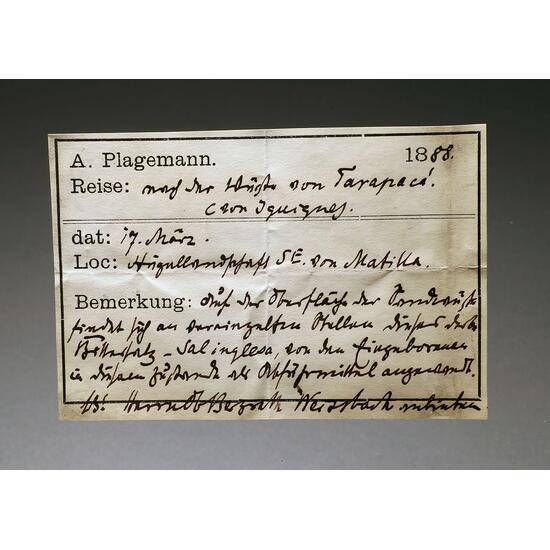 A. Plagemann. 1888.
Reise: nach der Wüste von Tarapacá.
(von Iquique).
dat: 17. März.
Loc: Hügellandschaft SE. von Matilla.
Bemerkung: Auf der Oberfläche der Sandwüste
findet sich an vereinzelten Stellen dieses derbe
Bittersalz – Sal inglesa, von den Eingeborenen
in diesem Zustande als Abführmittel angewandt.
Herrn Ob. Bergrath Weisbach